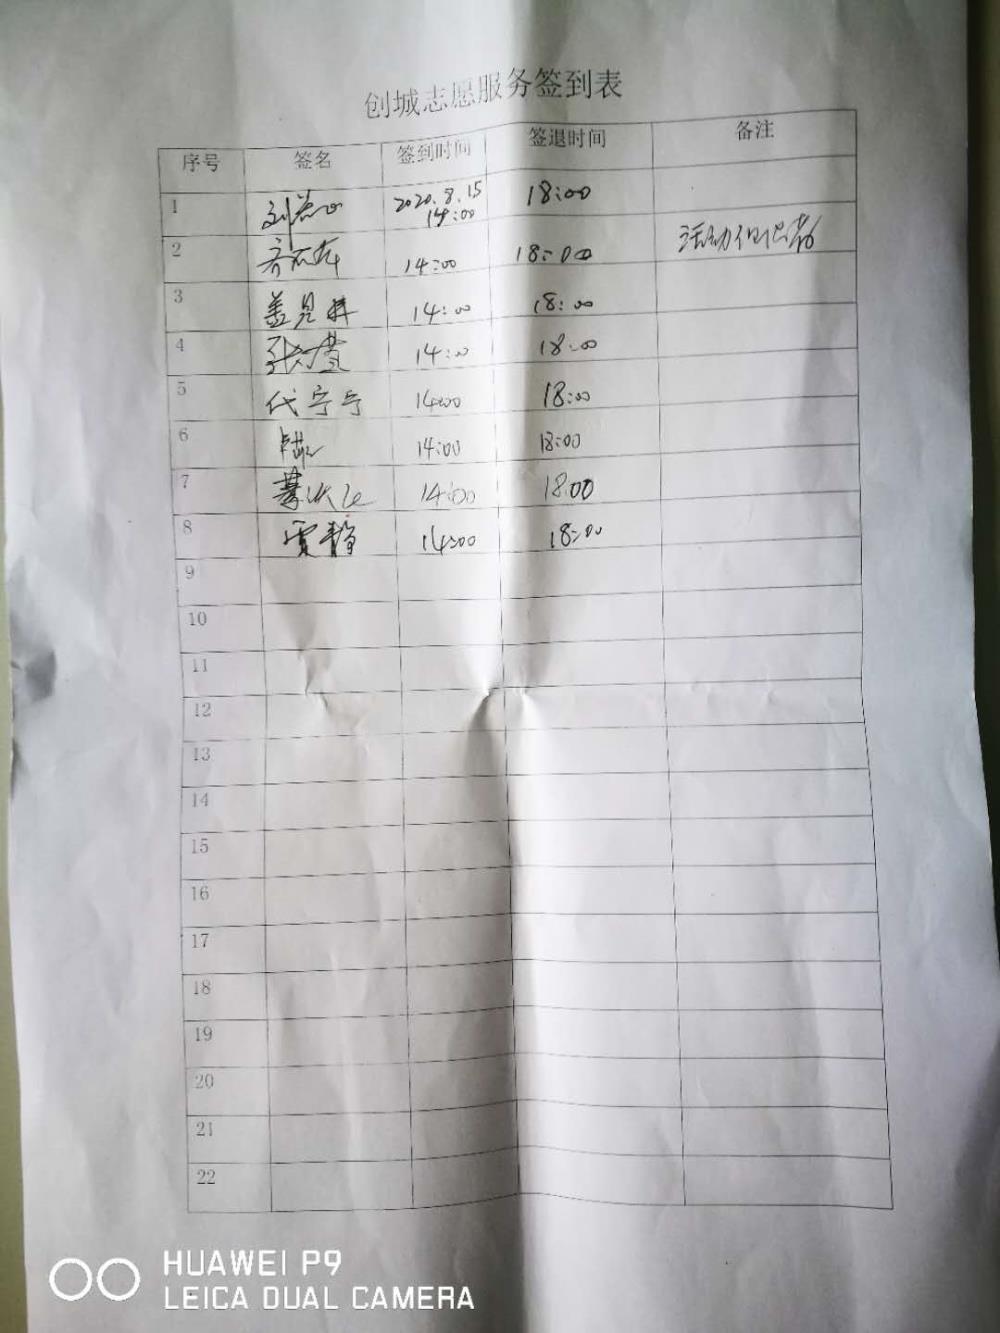 创城志愿服务签到表
序号 签名 签到时间 签退时间 备注
1 2020.8.15 14:00 18:00
2 14:00 18:00 活动组织者
3 14:00 18:00
4 14:00 18:00
5 代宁宁 14:00 18:00
6 14:00 18:00
7 14:00 18:00
8 贾静 14:00 18:00
9
10
11
12
13
14
15
16
17
18
19
20
21
22
HUAWEI P9
LEICA DUAL CAMERA